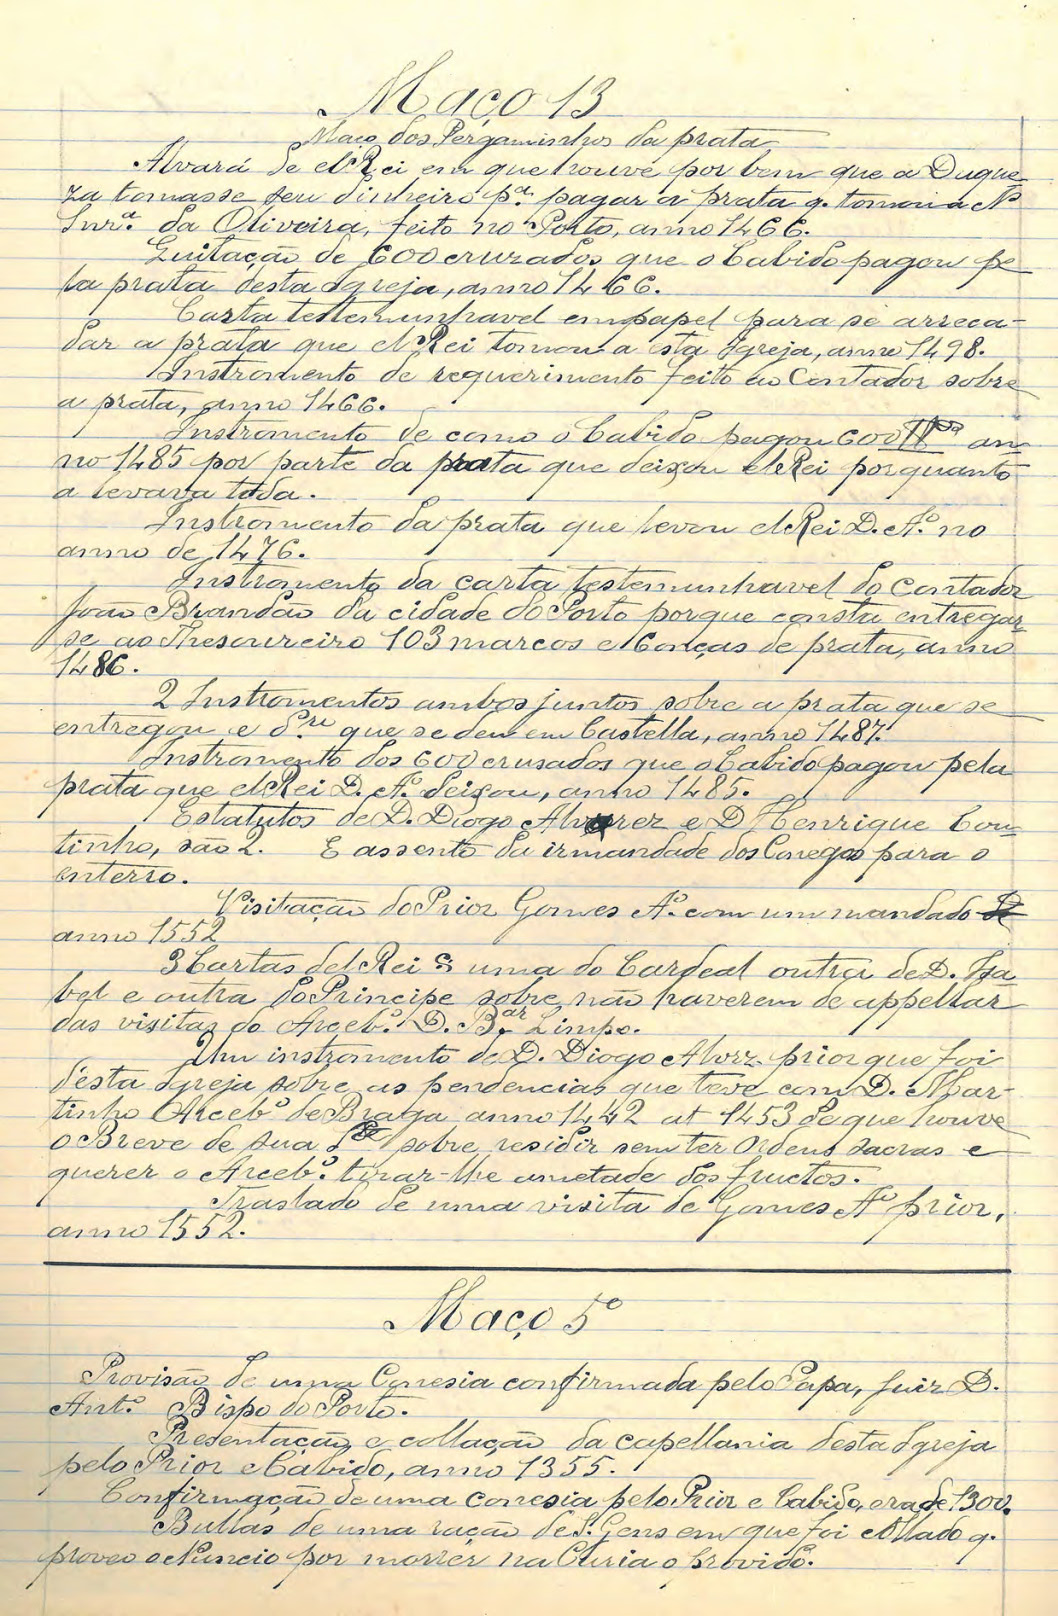 Maço 13
Maço dos Pergaminhos da prata
Alvará de el Rei em que houve por bem que a Duque
za tomasse seu dinheiro pª. pagar a prata q. tomou a N
Snrª. da Oliveira, feito no Porto, anno 1466.
Quitação de 600 cruzados que o Cabido pagou pe
la prata desta Igreja, anno 1466.
Carta testemunhavel em papel para se arreca-
dar a prata que el Rei tomou a esta Igreja, anno 1498.
Instromento de requerimento feito ao Contador sobre
a prata, anno 1466.
Instromento de como o Cabido pagou 600 an
no 1485 por parte da prata que deixou el Rei porquanto
a levara toda.
Instromento da prata que levou el Rei D. Aº. no
anno de 1476.
Instromento da carta testemunhavel do Contador
João Brandão da cidade do Porto porque consta entregar
se ao Thesoureiro 103 marcos e 6 onças de prata, anno
1486.
2 Instromentos ambos juntos sobre a prata que se
entregou e que se deu em Castella, anno 1487.
Instromento dos 600 crusados que o Cabido pagou pela
prata que el Rei D. Aº. deixou, anno 1485.
Estatutos de D. Diogo Alvarez e D Henrique Cou
tinho, são 2. E assento da irmandade dos Conegos para o
enterro.
Visitação do Prior Gomes Aº. com um mandado
anno 1552
3 Cartas del Rei uma do Cardeal outra de D. Isa
bel e outra do Principe sobre não haverem de appellar
das visitas do Arcebº. D. Bar. Limpo.
Um instromento de D. Diogo Alvrz prior que foi
désta Igreja sobre as pendencias que teve com D. Mar-
tinho Arcebº de Braga anno 1442 at 1453 de que houve
o Breve de sua Sde sobre residir sem ter Ordens sacras e
querer o Arcebº. tirar-lhe ametade dos fructos.
Traslado de uma visita de Gomes Aº prior,
anno 1552.
Maço 5º
Provisão de uma Conesia confirmada pelo Papa, Juiz D.
Antº. Bispo do Porto.
Presentação e collação da capellania desta Igreja
pelo Prior e Cabido, anno 1355.
Confirmação de uma conesia pelo Prior e Cabido, era de 1300.
Bullas de uma ração de S. Gens em que foi collado q.
proveo o Nuncio por morrer na Curia o provido.